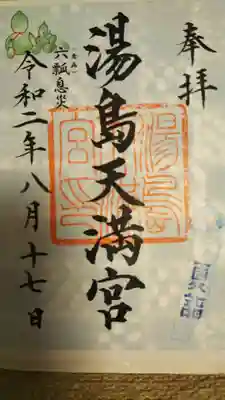 奉拝
夏詣
湯島天満宮
六瓢息災
令和二年八月十七日